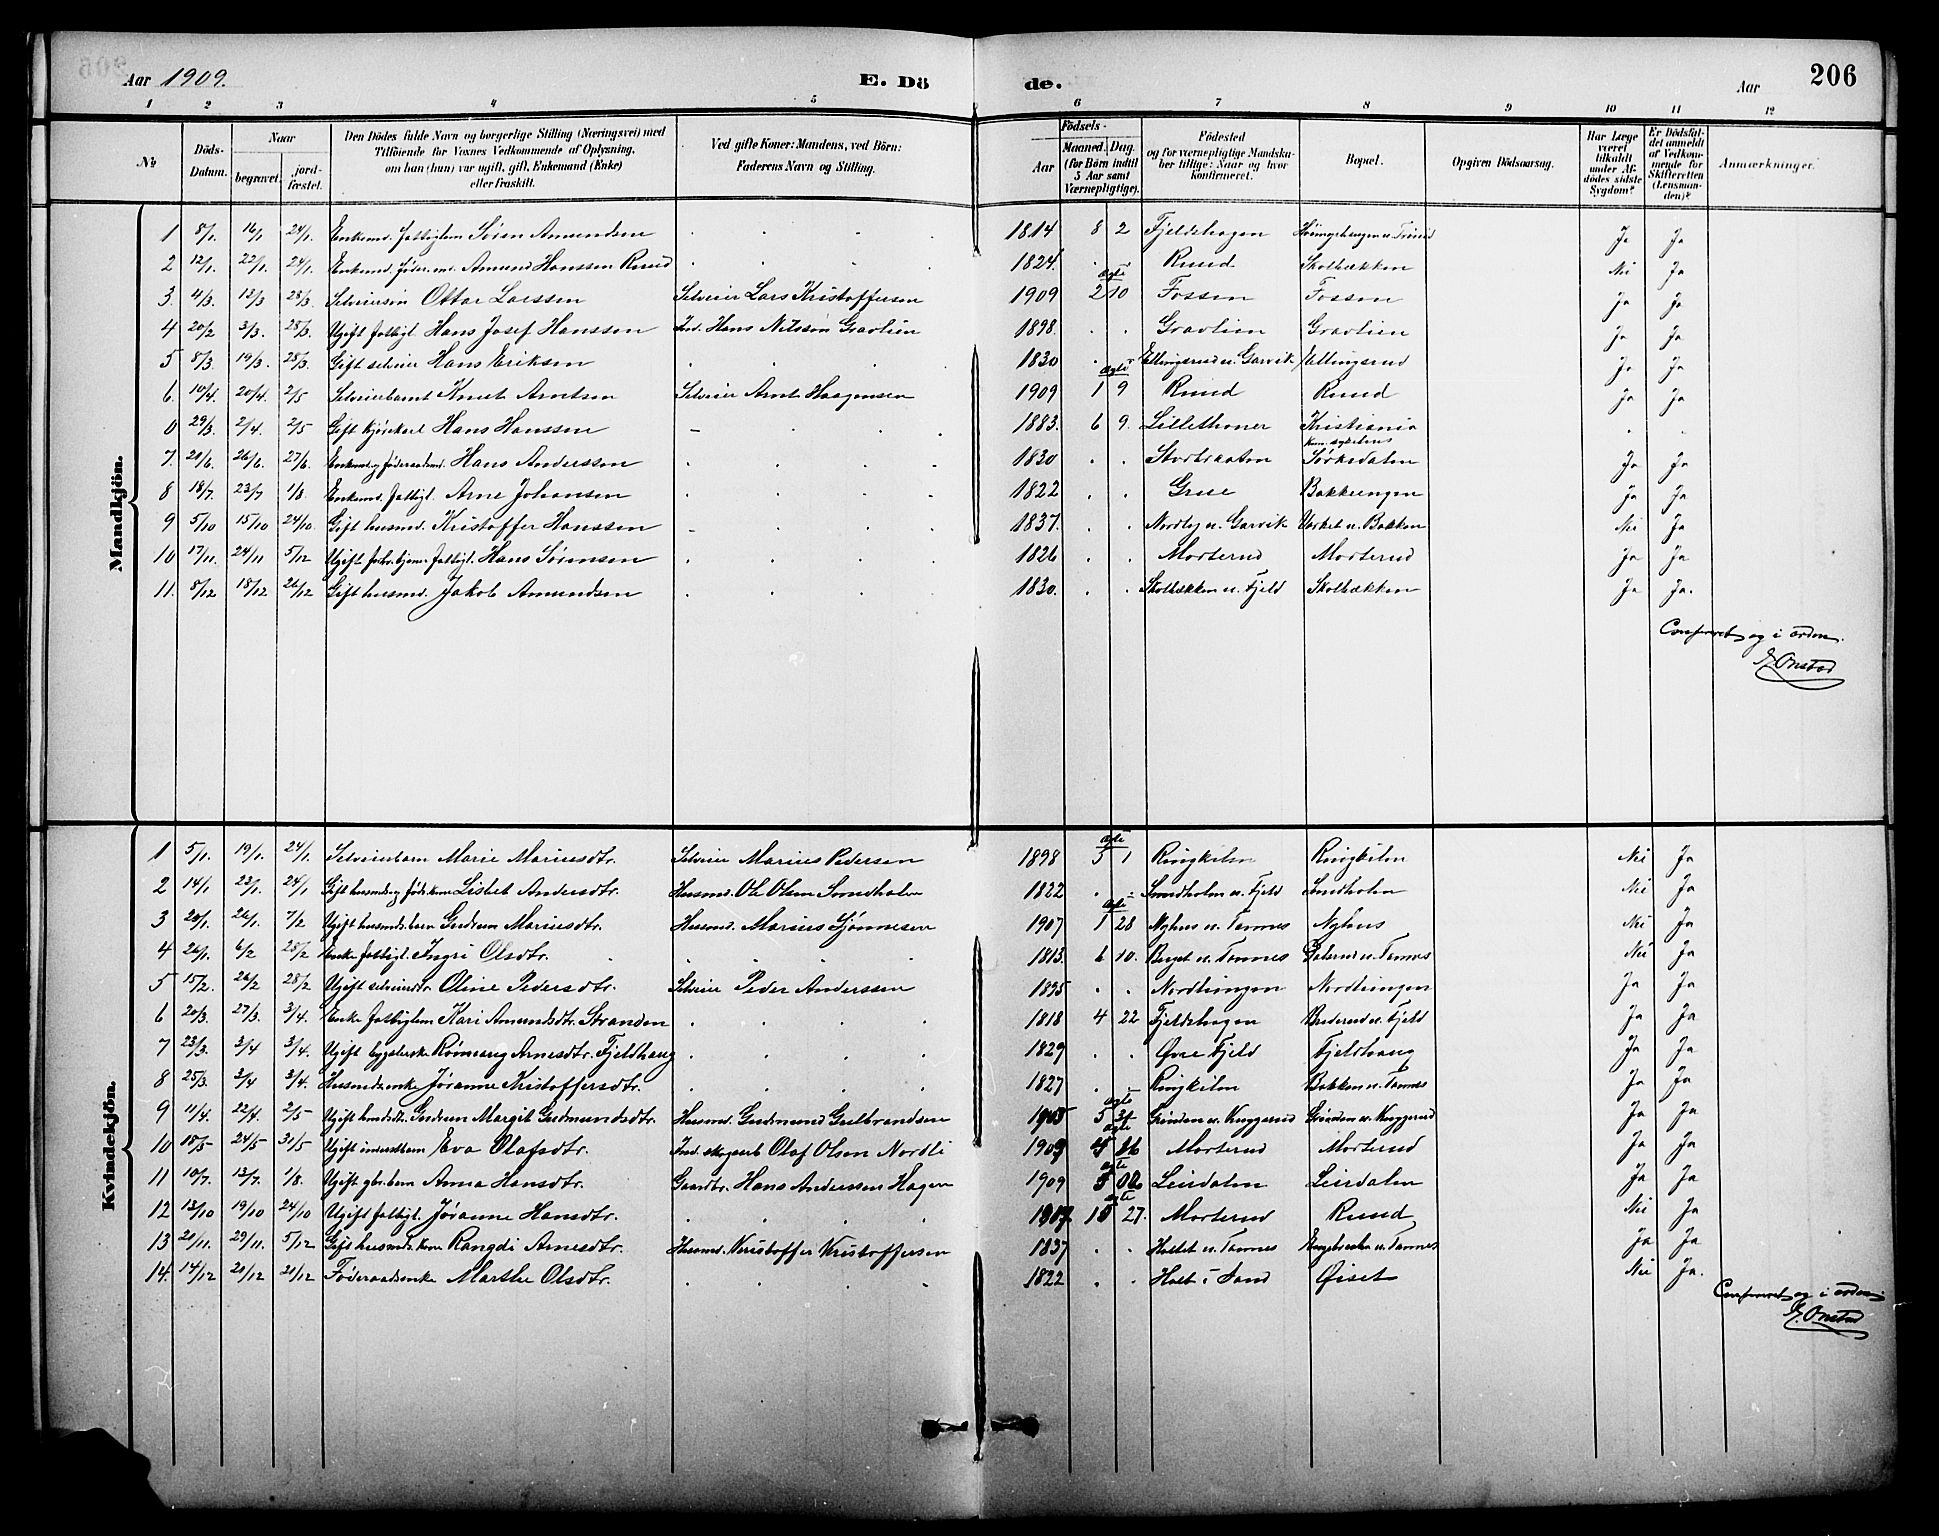 Aar 1909. E. Dö de. Aar 206
1 2 3 4 5 6 7 8 9 10 11 12
No Döds-Datum. Naar begravet. jordfæstet. Den Dödes fulde Navn og borgerlige Stilling (Næringsvei) med Tilföiende for Voxnes Vedkommende af Oplysning, om han (hun) var ugift, gift, Enkemand (Enke) eller fraskilt. Ved gifte Koner: Mandens, ved Börn: Faderens Navn og Stilling. Födsels- Aar Maaned. Dag. (for Börn indtil 5 Aar samt Værnepligtige). Födested og for værnepligtige Mandskaber tillige: Naar og hvor konfirmeret. Bopæl. Opgiven Dödsaarsag. Har Læge været tilkaldt under Afdödes sidste Sygdom? Er Dödsfaldet anmeldt af Vedkommende for Skifteretten (Lensmanden)? Anmærkninger.
Mandkjön.
1 8/1. 16/1 24/1. Enkemd. fattiglem Søren Amundsen 1814 8 2 Fjeldshagen Ja Ja
2 12/1. 22/1. 24/1. Enkemd. Amund Hanssen Ruud 1824. Ruud Skolbækken Nei Ja
3. 4/3. 12/3 28/3. Selveiersøn Ottar Larssen Selveier Lars Kristoffersen 1909 2 10 Fossen Fossen Ja Ja
4 20/2 3/3. 28/3. Ugift fattigl. Hans Josef Hanssen Ind. Hans Nilsson Gravlien 1898. Gravlien Gravlien Ja Ja
5 8/3. 19/3. 28/3. Gift selveier Hans Eriksen 1830 Ellingsrud u. Garvik Ellingsrud Ja Ja
6. 14/4. 20/4. 2/5 Selveierbarnt Knut Arntsen Selveier Arnt Haagensen 1909 1 9 Ruud Ruud Ja Ja
0 29/3. 2/4. 2/5 Gift kjørekarl Hans Hanssen 1883. 6 9. Lillethoner Kristiania
7. 20/6. 26/6. 27/6. Enkemd. Hans Anderssen 1830 Sørkedalen Ja Ja
8 18/7. 23/7 1/8. Enkemd. fattigl. Arne Johansen 1822 Grue Bakkeengen Ja Ja
9 5/10 15/10 24/10. Gift husmd. Kristoffer Hanssen 1837. Nordby u. Garvik u. Bakken Nei Ja
10 17/11. 24/11 5/12 Ugift fattigl. Hans Sørensen 1826 Morterud Morterud Ja Ja
11. 8/12 18/12 26/12 Gift husmd. Jakob Amundsen 1830. Skolbækken u. Fjeld Skolbækken Ja Ja.
Confereret og i orden.
Onstad
Kvindekjön.
1 5/1. 19/1. 24/1. Selveierbarn Marie Mariusdtr. Selveier Marius Pedersen 1898 5 1 Ringkilen Ringkilen Nei Ja
2 14/1 23/1 24/1 Lisbet Andersdtr. Husmd. Ole Olsen 1822 Nei Ja
3 20/1. 26/1. 7/2 Ugift husmds. barn Gudrun Mariusdtr. Husmd. Marius 1907 1 28 Nyhus u. Tannes Nyhus Nei Ja
4 26/1. 6/2 28/2 Enke fattigl. Ingri Olsdtr. 1813. 6 10. Berget u. Tannes u. Tannes Nei Ja
5 15/2. 26/2 28/2 Ugift selveierdtr. Oline Pedersdtr. Selveier Peder Anderssen 1895 Nordlningen Nordlningen Ja Ja
6 20/3. 27/3. 3/4. Enke fattiglem Kari Amundsdtr. Stranden 1818 4 22 Fjeldshagen Brederud u. Fjeld Ja Ja
7 23/3. 3/4 3/4. Ugift Arnesdtr. Fjeldhaug 1829 Øvre Fjeld Fjeldhaug Ja Ja
8 25/3. 3/4 3/4. Husmdsenke Jøranne Kristoffersdtr. 1827 Ringkilen Bakken u. Tannes Ja Ja
9 11/4. 22/4. 2/5 Ugift Gudrun Margit Gudmundsdtr. Husmd. Gudmund Gulbrandsen 1905 5 Grinden u. Kuggerud Grinden u. Kuggerud Ja Ja
10 18/5 24/5 31/5 Ugift Eva Olafsdtr. Olaf Olson Nordli 1909 Morterud Morterud Ja Ja
11 10/7. 13/7. 1/8. Ugift gbr. barn Anna Hansdtr. Gaardbr. Hans Anderssen Hagen 1909 5 Leirdalen Leirdalen Ja Ja
12 13/10 19/10 24/10 Ugift fattigl. Jøranne Hansdtr. 27. Morterud Ruud Nei Ja
13 20/11. 29/11. 5/12 Gift husmds. kone Rangdi Arnesdtr. Husmd. Kristoffer Kristoffersen 1837 Holtet u. Tannes u. Tannes Ja Ja
14. 14/12 20/12 21/12 Føderaadsenke Marthe Olsdtr. 1822 Holt i Sand Øiset Nei Ja.
Confereret og i orden.
Onstad